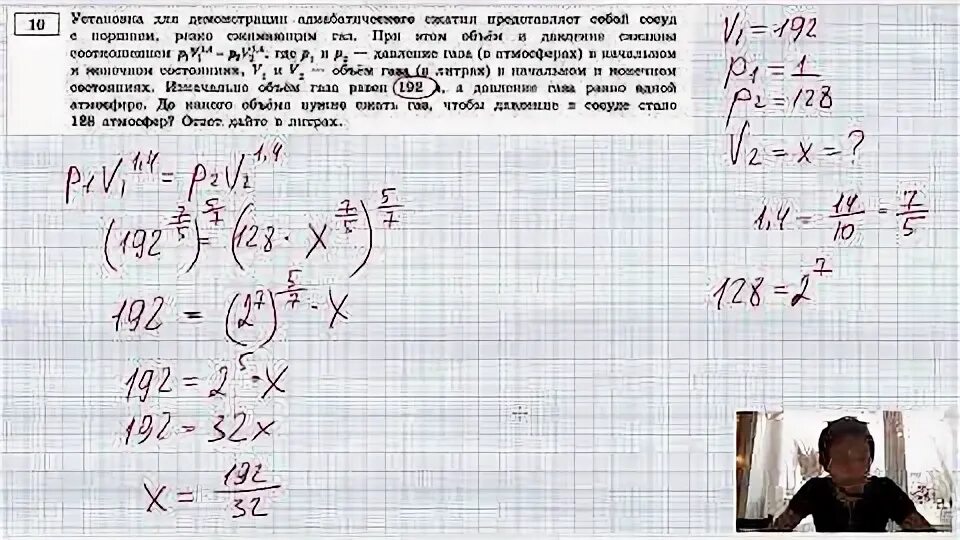 10
Установка для демонстрации адиабатического сжатия представляет собой сосуд
с поршнем, резко сжимающим газ. При этом объём и давление связаны
соотношением p₁V₁^1,4 = p₂V₂^1,4, где p₁ и p₂ — давление газа (в атмосферах) в начальном
и конечном состояниях, V₁ и V₂ — объём газа (в литрах) в начальном и конечном
состояниях. Изначально объём газа равен 192 л, а давление газа равно одной
атмосфере. До какого объёма нужно сжать газ, чтобы давление в сосуде стало
128 атмосфер? Ответ дайте в литрах.
V₁ = 192
p₁ = 1
p₂ = 128
V₂ = x = ?
p₁V₁^1,4 = p₂V₂^1,4
(192^7/5)^5/7 = (128 · x^7/5)^5/7
192 = (2^7)^5/7 · x
192 = 2^5 · x
192 = 32x
x = 192/32
1,4 = 14/10 = 7/5
128 = 2^7